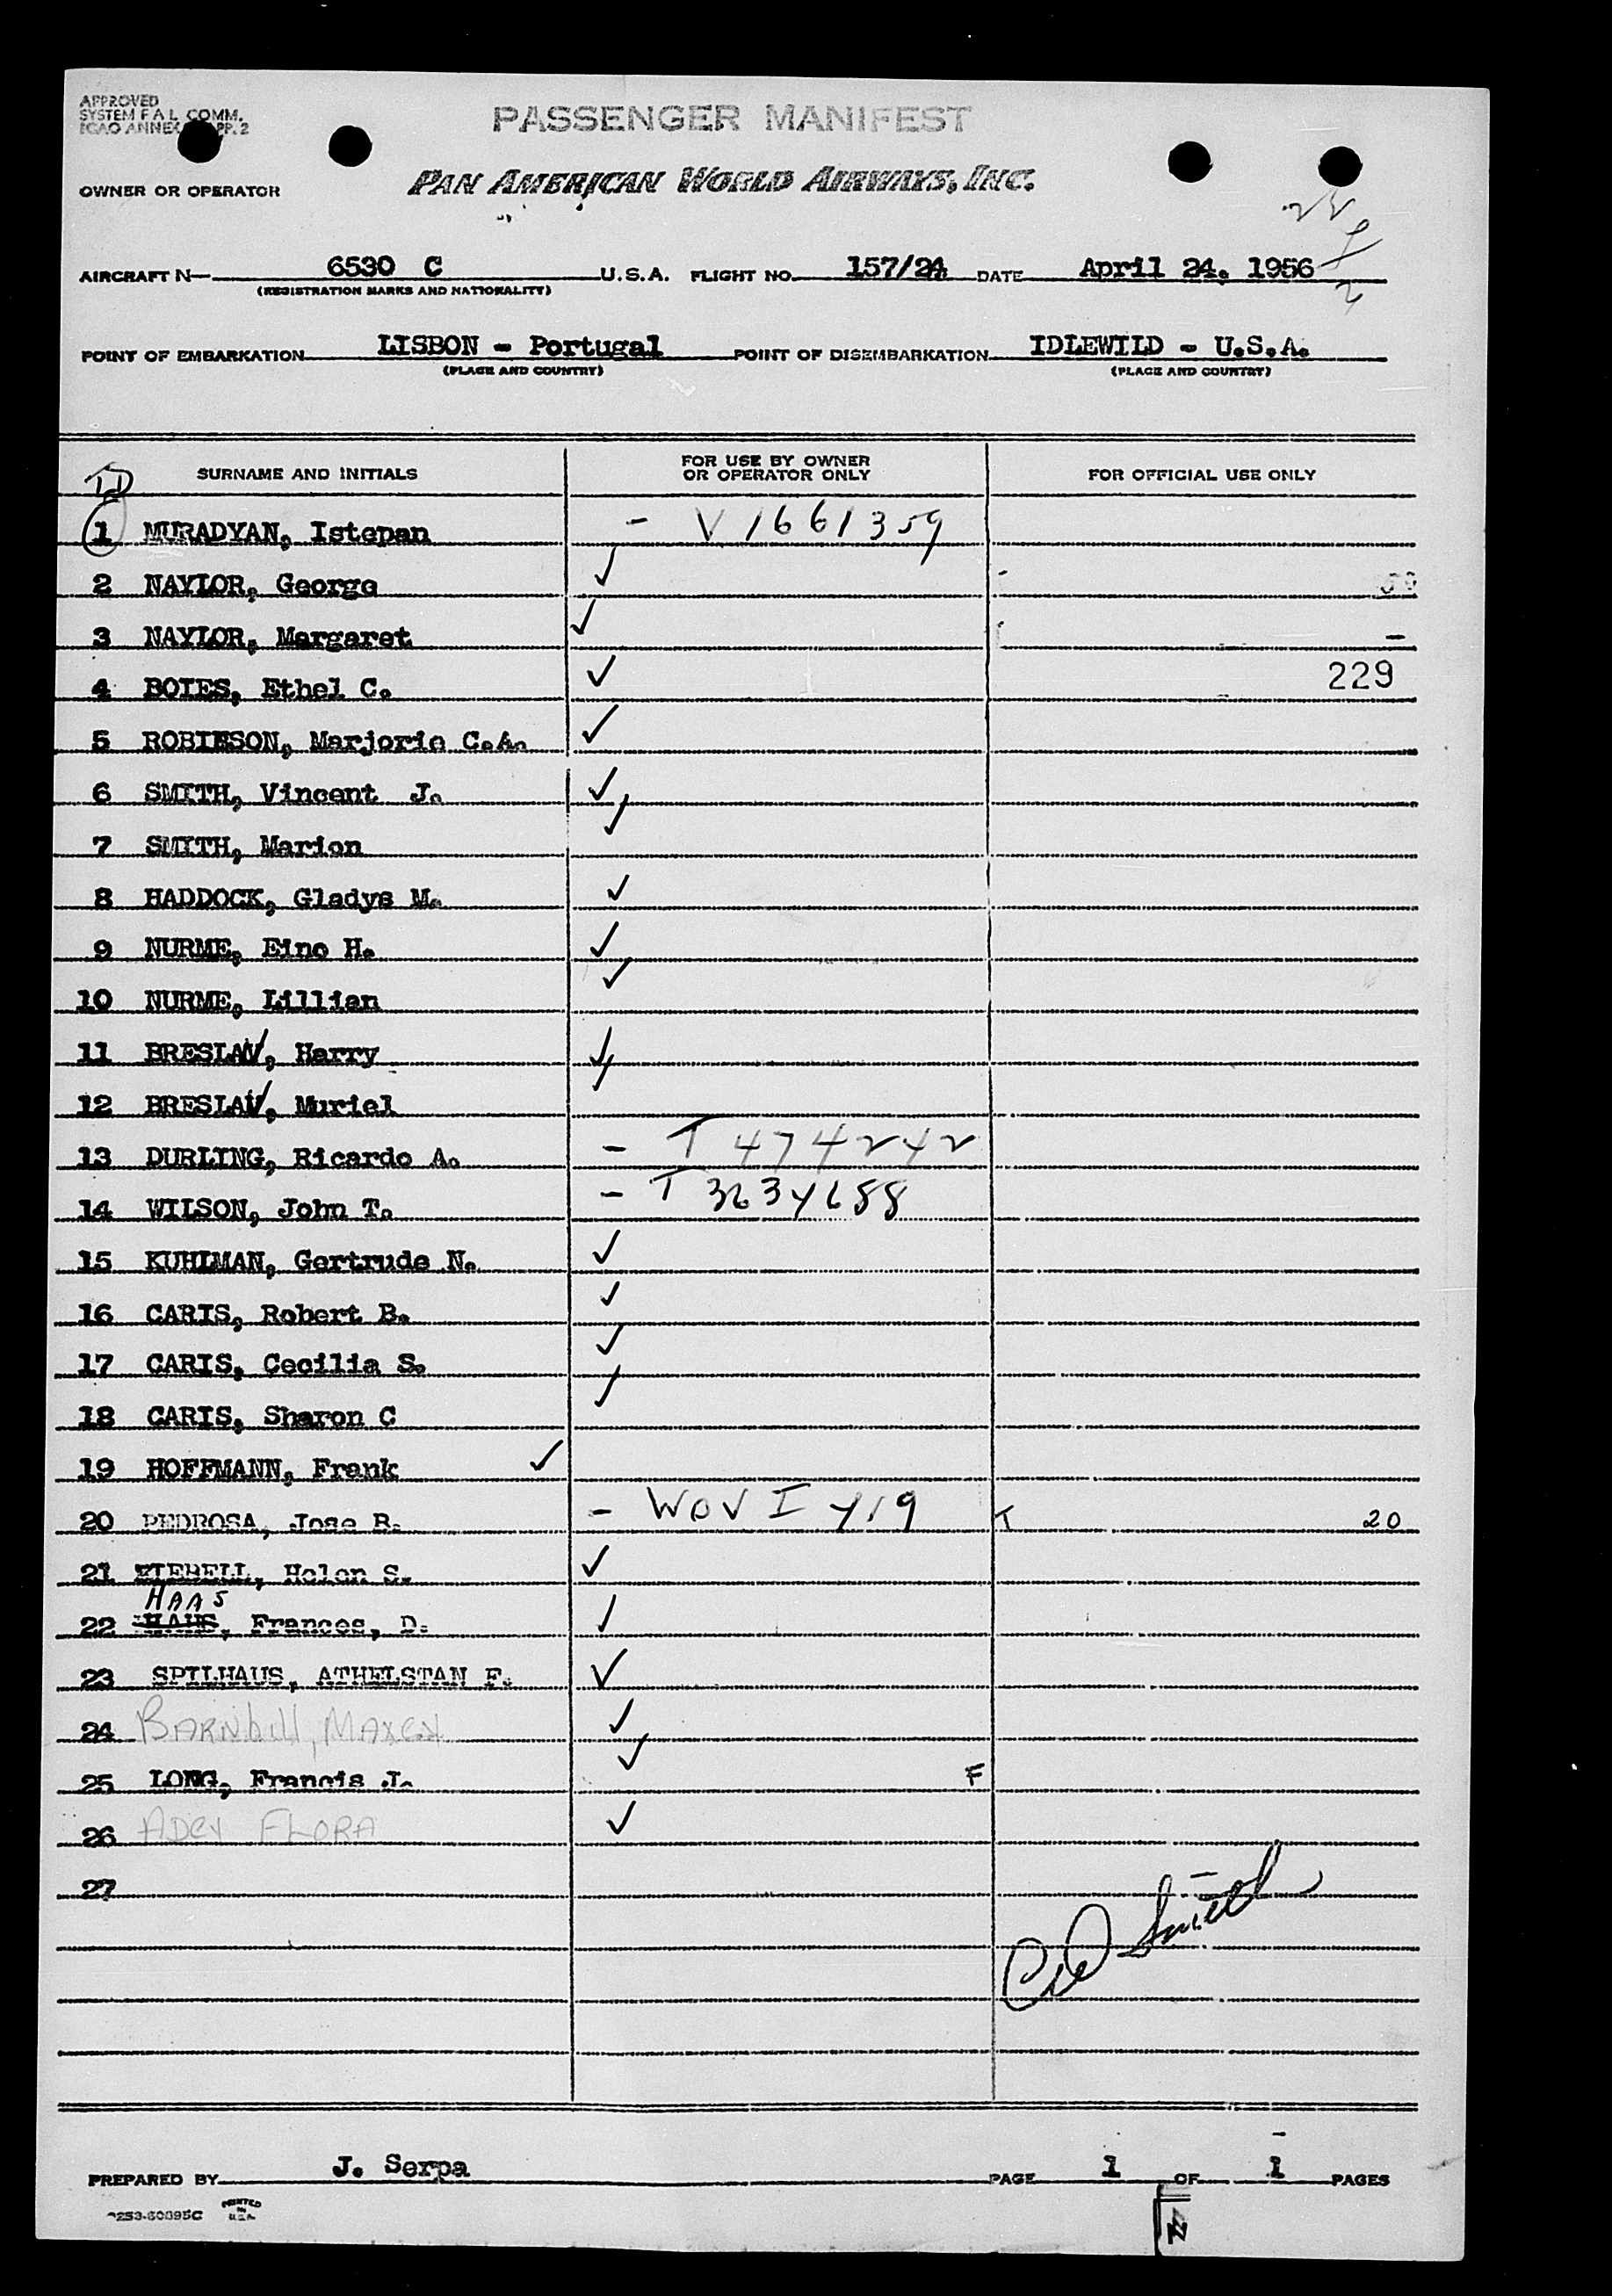 APPROVED
SYSTEM F A L COMM.
ICAO ANNEX PP. 2
PASSENGER MANIFEST
OWNER OR OPERATOR PAN AMERICAN WORLD AIRWAYS, INC.
AIRCRAFT N— 6530 C U.S.A. FLIGHT NO. 157/24 DATE April 24. 1956
(REGISTRATION MARKS AND NATIONALITY)
POINT OF EMBARKATION LISBON - Portugal POINT OF DISEMBARKATION IDLEWILD - U.S.A.
(PLACE AND COUNTRY) (PLACE AND COUNTRY)
SURNAME AND INITIALS FOR USE BY OWNER OR OPERATOR ONLY FOR OFFICIAL USE ONLY
1 MURADYAN, Istepan - V 1661359
2 NAYLOR, George ✓
3 NAYLOR, Margaret ✓
4 BOIES, Ethel C. ✓ 229
5 ROBIESON, Marjorie C.A. ✓
6 SMITH, Vincent J. ✓
7 SMITH, Marion ✓
8 HADDOCK, Gladys M. ✓
9 NURME, Eino H. ✓
10 NURME, Lillian ✓
11 BRESLAV, Harry ✓
12 BRESLAV, Muriel ✓
13 DURLING, Ricardo A. - T 474242
14 WILSON, John T. - T
15 KUHLMAN, Gertrude N. ✓
16 CARIS, Robert B. ✓
17 CARIS, Cecilia S. ✓
18 CARIS, Sharon C ✓
19 HOFFMANN, Frank ✓
20 PEDROSA, Jose B. - T 20
21 Helen S. ✓
HAAS
22 HAUS, Frances, D. ✓
23 SPILHAUS, ATHELSTAN F. ✓
24 Barnhill, Maxey ✓
25 LONG, Francis J. ✓ F
26 Adey FLORA ✓
27
Smith
PREPARED BY J. Serpa PAGE 1 OF 1 PAGES
PRINTED IN U.S.A.